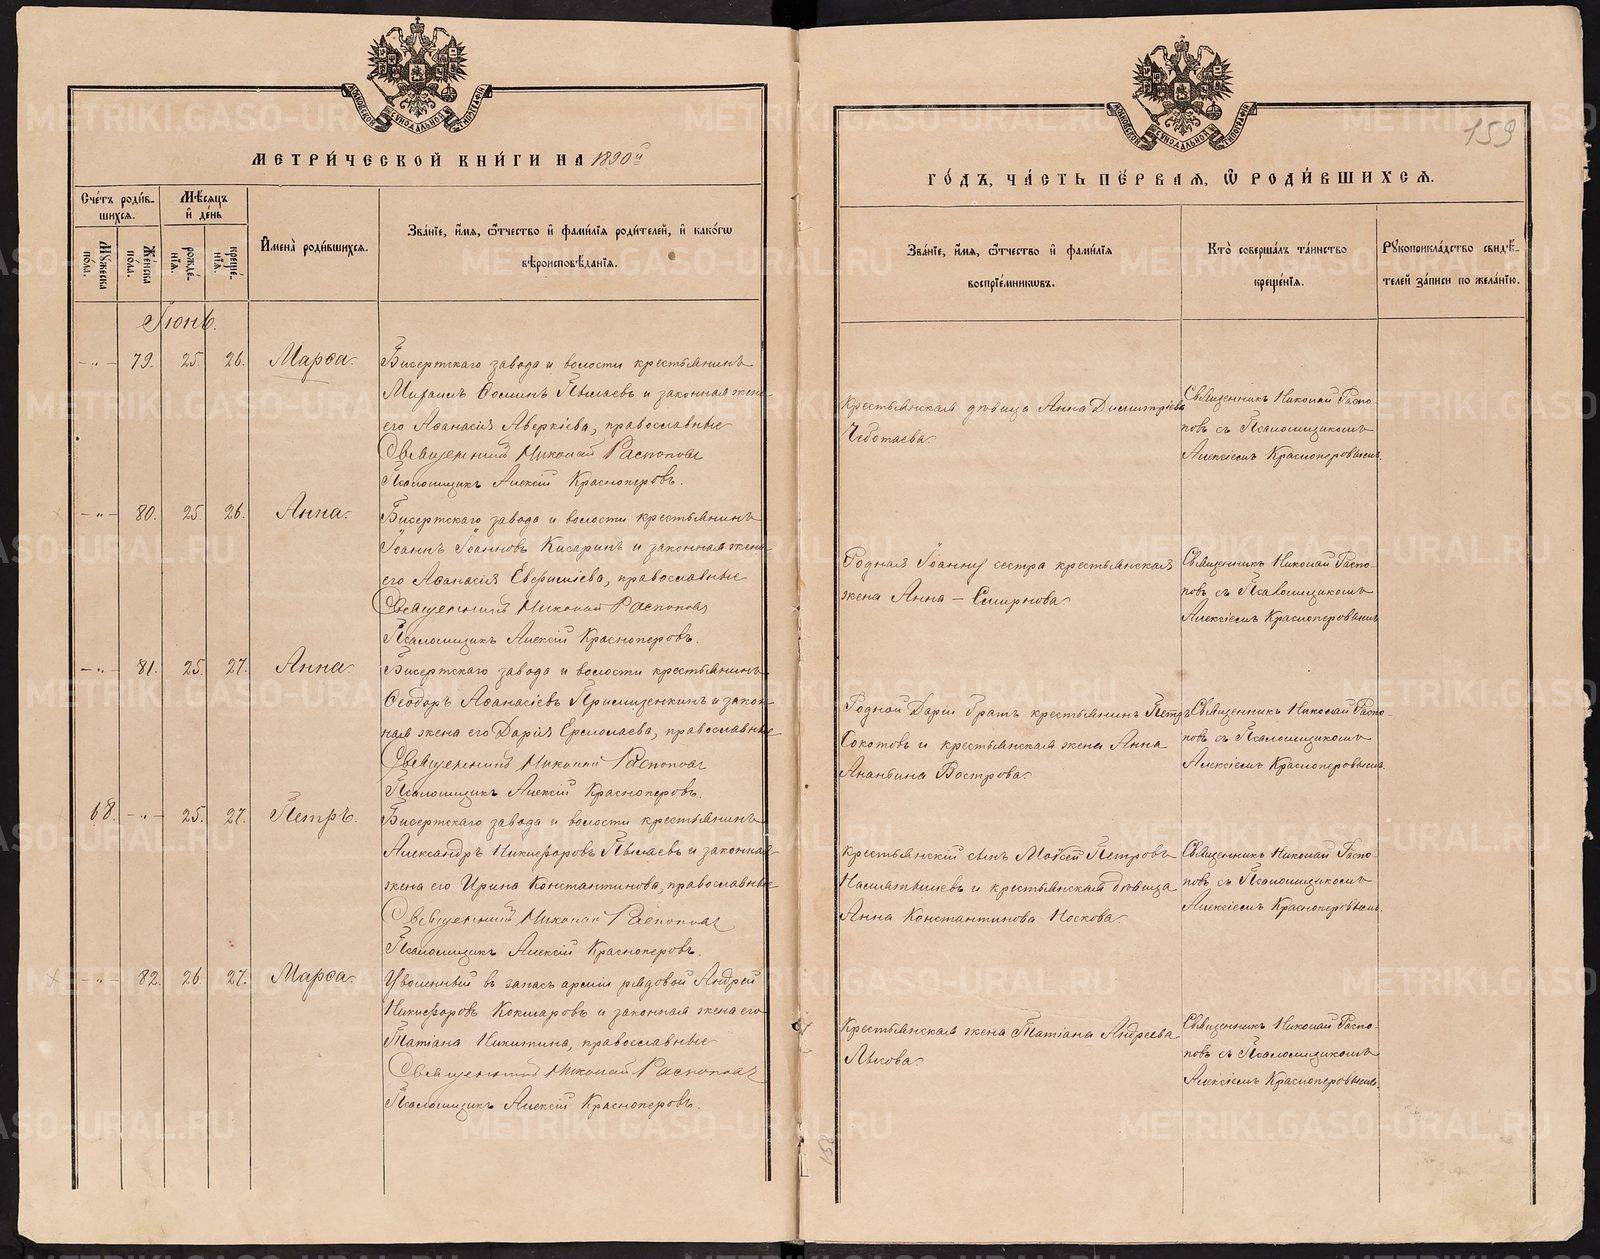 МЕТРИ́ЧЕСКОЙ КНИ́ГИ НА 1890й
Сче́тъ роди́в-
шихся.
Мѣ́сяцъ
и̂ де́нь
Мꙋжеска
по́ла.
Же́нска
по́ла.
рожде́-
нїя.
креще́-
нїя.
И̂мена̀ роди́вшихся.
Зва́нїе, и̂́мя, ѻ҆́тчество и̂ фами́лїя роди́телей, и̂ како́гѡ
вѣроисповѣ́данїя.
Іюнь.
-"- 79. 25. 26. Марѳа.
Бисертскаго завода и волости крестьянинъ
Михаилъ Ѳоминъ Пылаевъ и законная жена
его Аѳанасія Аверкіева, православные
Священникъ Николай Распоповъ
Псаломщикъ Алексій Красноперовъ.
-"- 80. 25. 26. Анна.
Бисертскаго завода и волости крестьянинъ
Іоаннъ Іоанновъ Кисаринъ и законная жена
его Аѳанасія Евѳиміева, православные
Священникъ Николай Распоповъ
Псаломщикъ Алексій Красноперовъ.
-"- 81. 25. 27. Анна
Бисертскаго завода и волости крестьянинъ
Ѳеодоръ Аѳанасіевъ и закон-
ная жена его Дарія Ермолаева, православные
Священникъ Николай Распоповъ
Псаломщикъ Алексій Красноперовъ.
68. -"- 25. 27. Петръ.
Бисертскаго завода и волости крестьянинъ
Александръ Никифоровъ Пылаевъ и законная
жена его Ирина Константинова, православные
Священникъ Николай Распоповъ
Псаломщикъ Алексій Красноперовъ.
-"- 82. 26 27. Марѳа.
Уволенный въ запасъ арміи рядовой Андрей
Никифоровъ Кокшаровъ и законная жена его
Татіана Никитина, православные
Священникъ Николай Распоповъ
Псаломщикъ Алексій Красноперовъ.
159
ГО́ДЪ, ЧА́СТЬ ПЕ́РВАЯ, Ѽ РОДИ́ВШИХСЯ.
Зва́нїе, и̂́мя, ѻ҆́тчество и̂ фами́лїя
воспрїе́мникѡвъ.
Кто̀ соверша́лъ та́инство
креще́нїя.
Рꙋкоприкла́дство свидѣ́-
телей за́писи по жела́нїю.
Крестьянская дѣвица Анна Димитріева
Чеботаева.
Священникъ Николай Распо-
повъ съ Псаломщикомъ
Алексіемъ Красноперовымъ.
Родная Іоанну сестра крестьянская
жена Анна – Смирнова.
Священникъ Николай Распо-
повъ съ Псаломщикомъ
Алексіемъ Красноперовымъ
Родной Даріи братъ крестьянинъ Петръ
Сокотовъ и крестьянская жена Анна
Вострова.
Священникъ Николай Распо-
повъ съ Псаломщикомъ
Алексіемъ Красноперовымъ.
Крестьянскій сынъ Моѵсей Петровъ
и крестьянская дѣвица
Анна Константинова Носкова.
Священникъ Николай Распо-
повъ съ Псаломщикомъ
Алексіемъ Красноперовымъ.
Крестьянская жена Татіана Андреева
Лыкова.
Священникъ Николай Распо-
повъ съ Псаломщикомъ
Алексіемъ Красноперовымъ.
METRIKI.GASO-URAL.RU